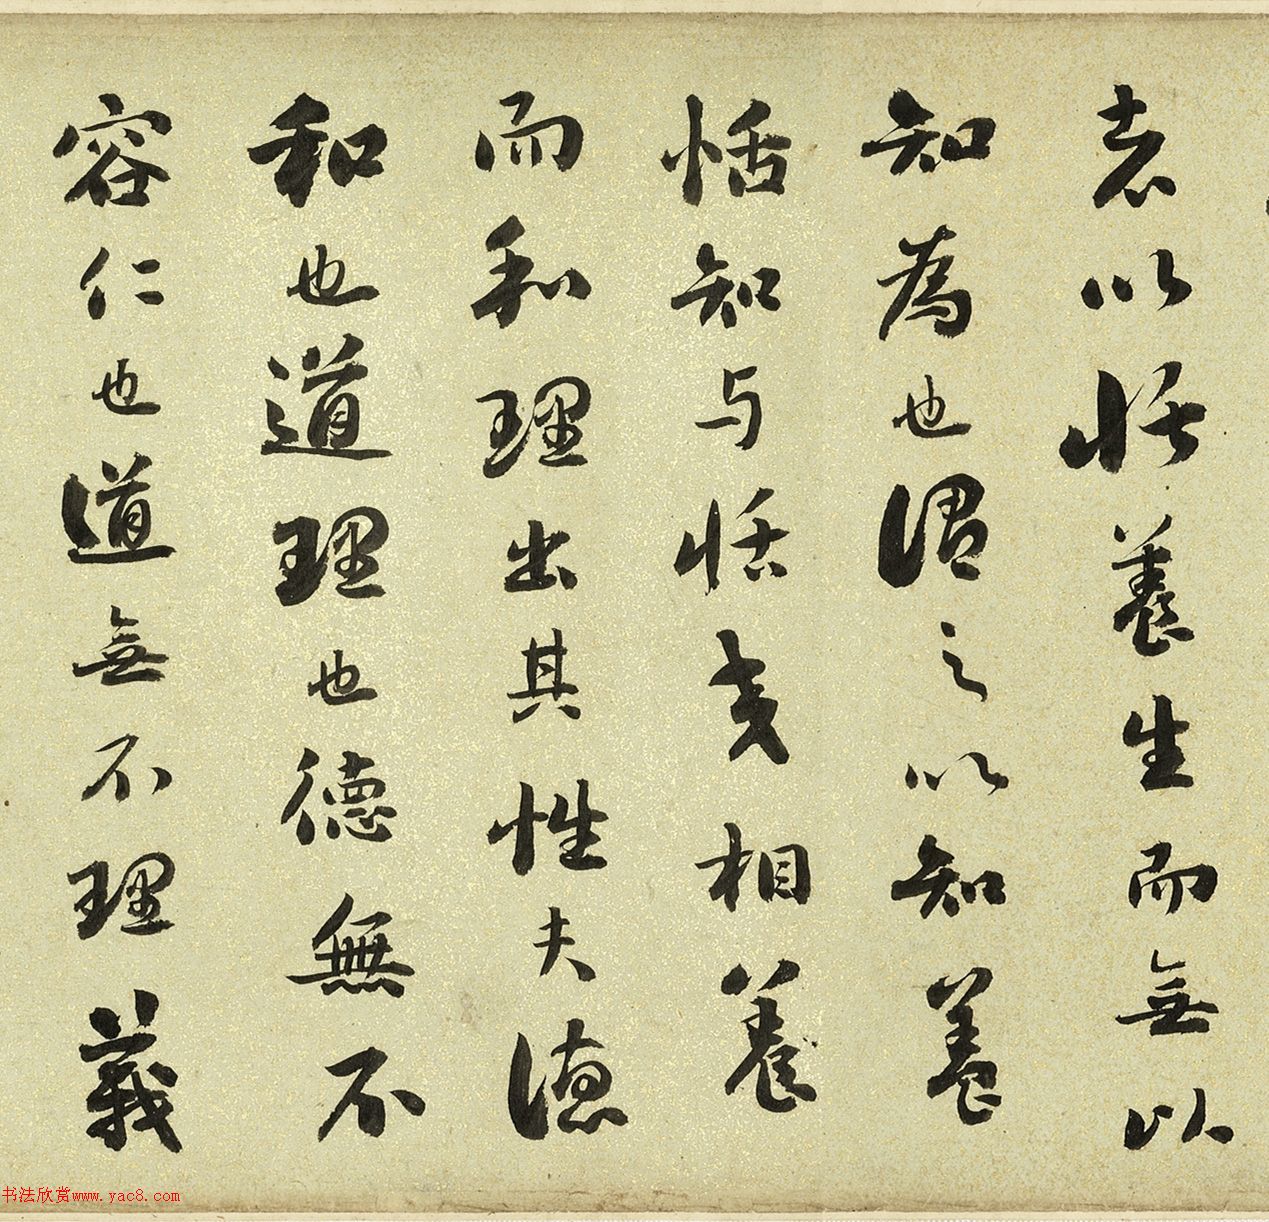 者以恬養生而無以
知為也謂之以知養
恬知与恬交相養
而和理出其性夫德
和也道理也德無不
容仁也道無不理義
书法欣赏www.yac8.com